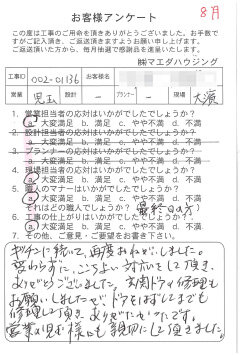 8月
お客様アンケート
この度は工事のご用命を頂きありがとうございました。お手数で
すがご記入頂き、ご返送頂きますようお願い申し上げます。
ご返送頂いた方から、毎月抽選で感謝品を進呈いたします。
㈱マエダハウジング
工事ID 002-01136 お客様名
営業 児玉 設計 － プランナー － 現場 大濱
1. 営業担当者の応対はいかがでしたでしょうか?
a. 大変満足 b. 満足 c. やや不満 d. 不満
2. 設計担当者の応対はいかがでしたでしょうか?
a. 大変満足 b. 満足 c. やや不満 d. 不満
3. プランナーの応対はいかがでしたでしょうか?
a. 大変満足 b. 満足 c. やや不満 d. 不満
4. 現場担当者の応対はいかがでしたでしょうか?
a. 大変満足 b. 満足 c. やや不満 d. 不満
5. 職人のマナーはいかがでしたでしょうか?
a. 大変満足 b. 満足 c. やや不満 d. 不満
それはどの職人でしょうか?
6. 工事の仕上がりはいかがでしたでしょうか?
a. 大変満足 b. 満足 c. やや不満 d. 不満
7. その他、ご意見・ご要望をお書き下さい。
キッチンに続いて、再度おねがいしました。
変わらずに、ここちよい対応をして頂き、
ありがとうございました。玄関ドアの修理も
お願いしましたが ドアをはずしてまでも
修理して頂き ありがたかったです。
営業の児玉様にも親切にして頂きました。